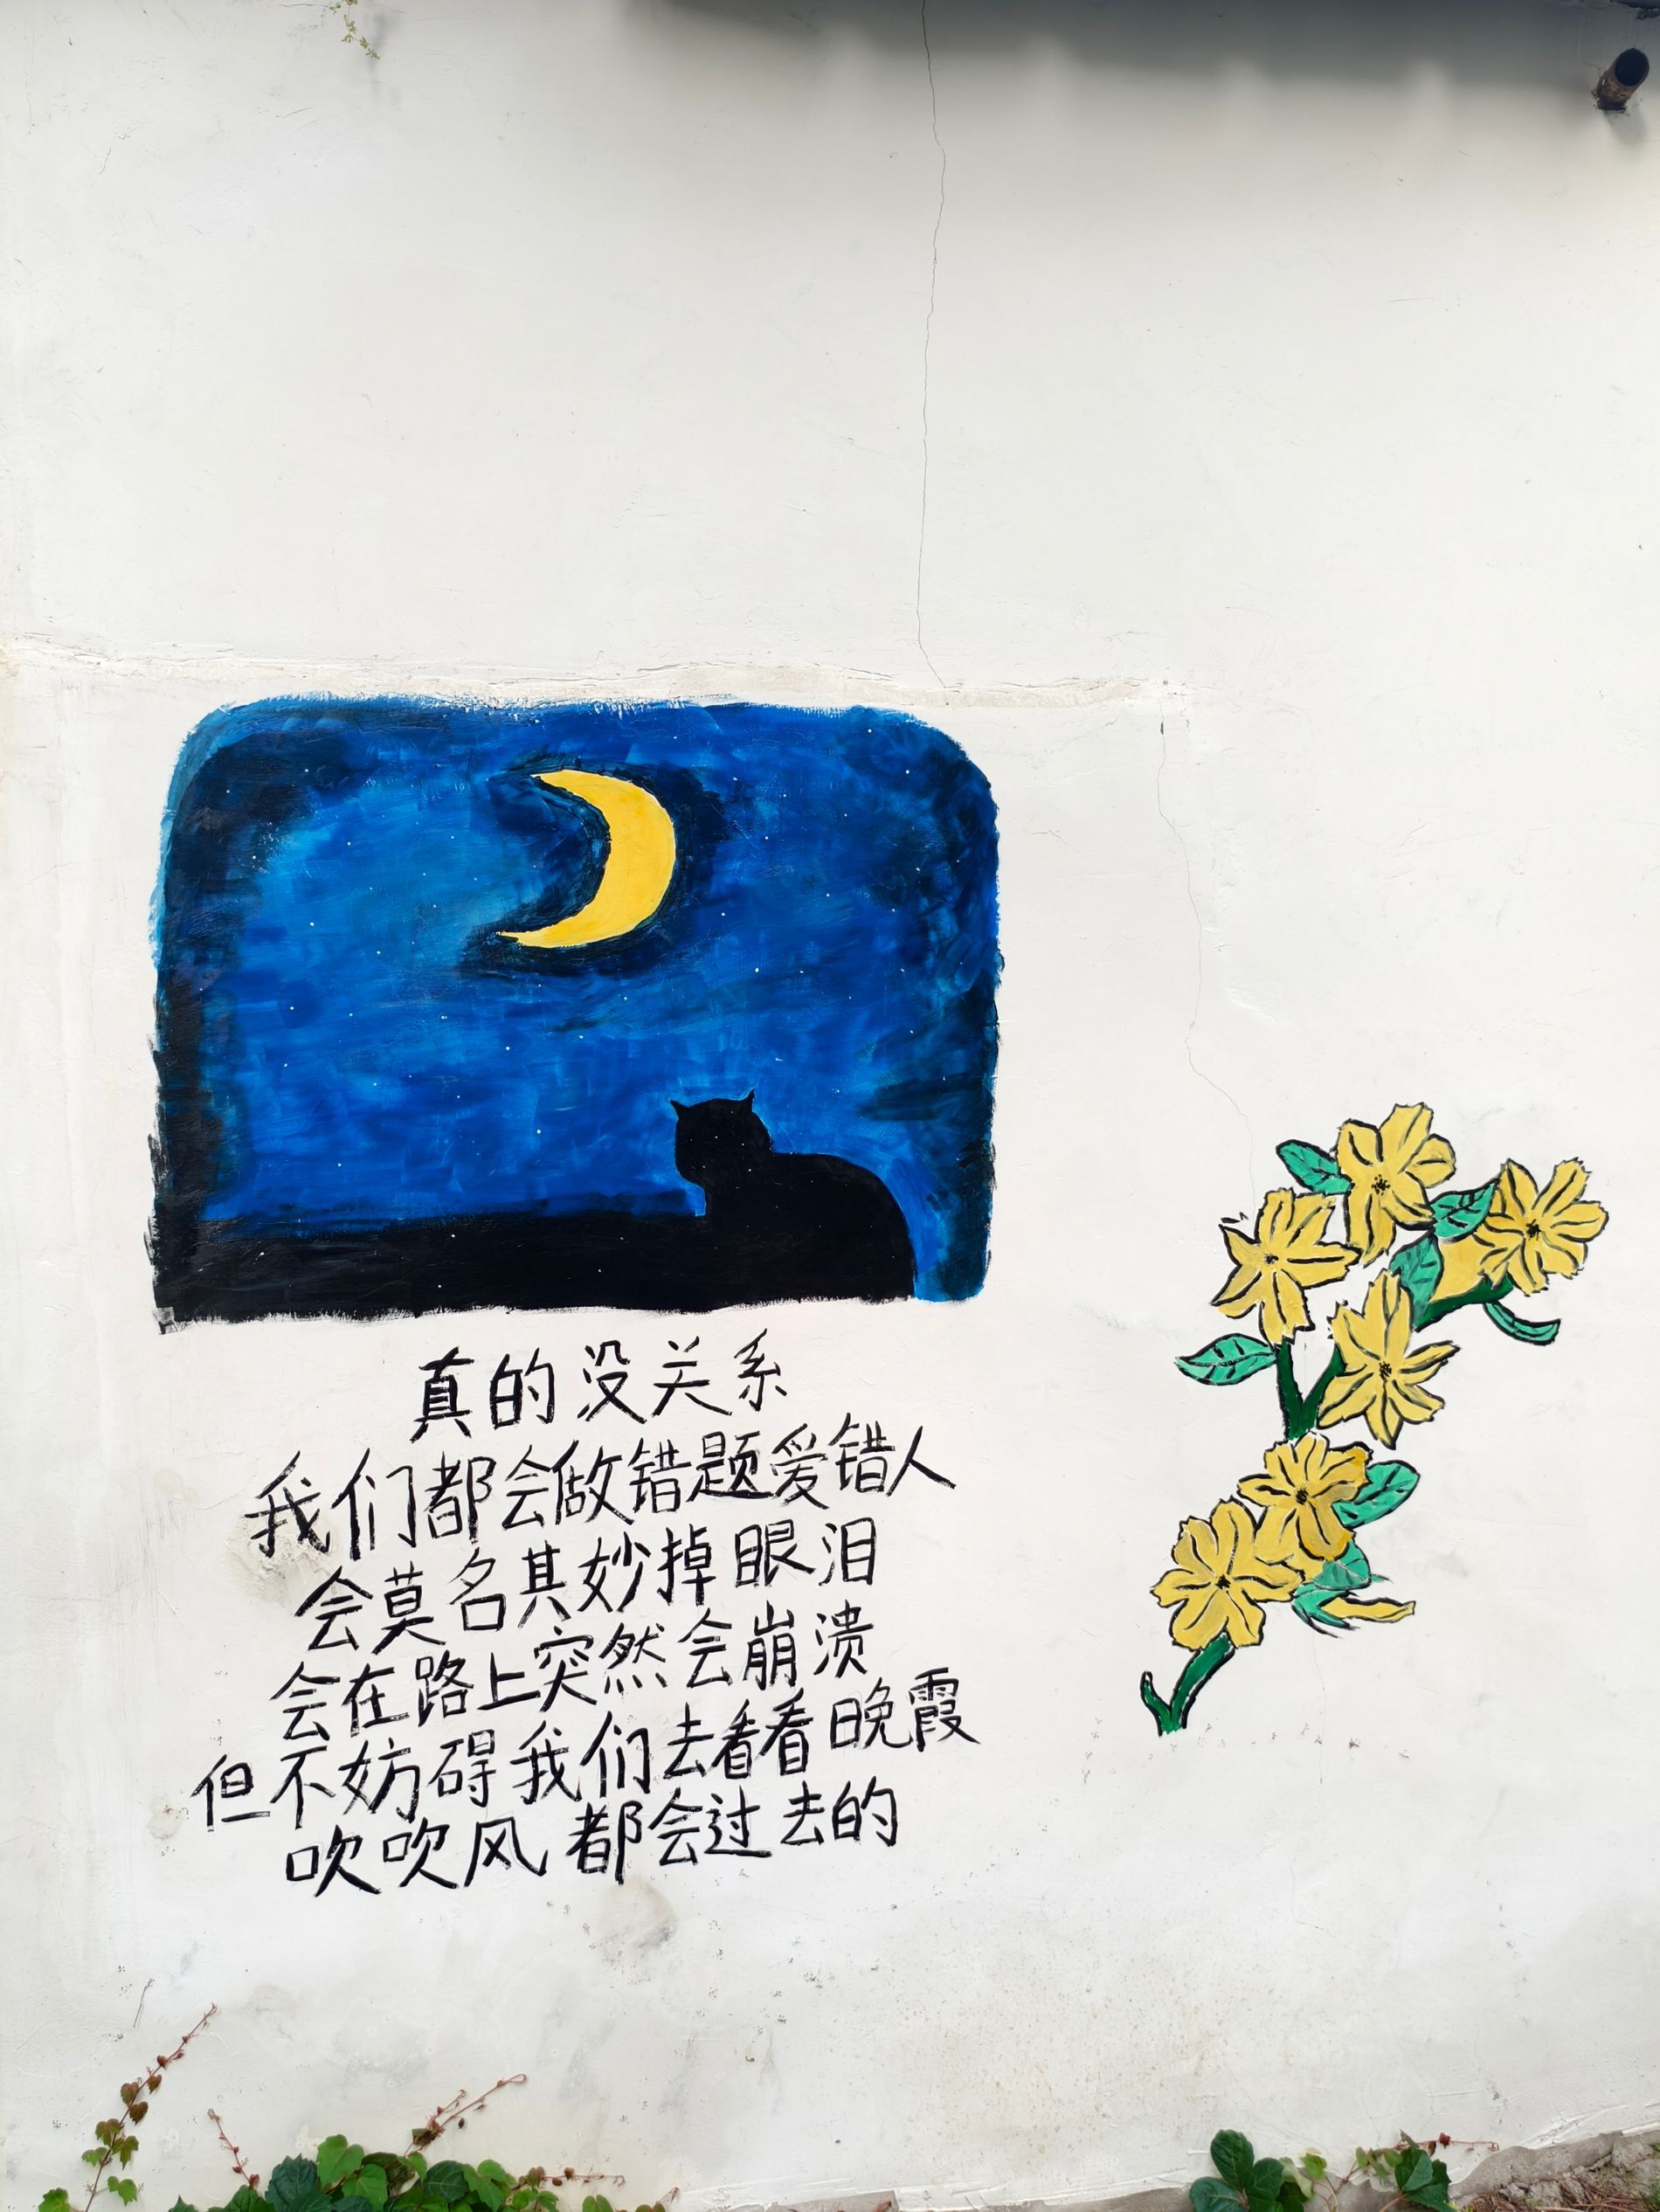 真的没关系
我们都会做错题爱错人
会莫名其妙掉眼泪
会在路上突然会崩溃
但不妨碍我们去看看晚霞
吹吹风 都会过去的